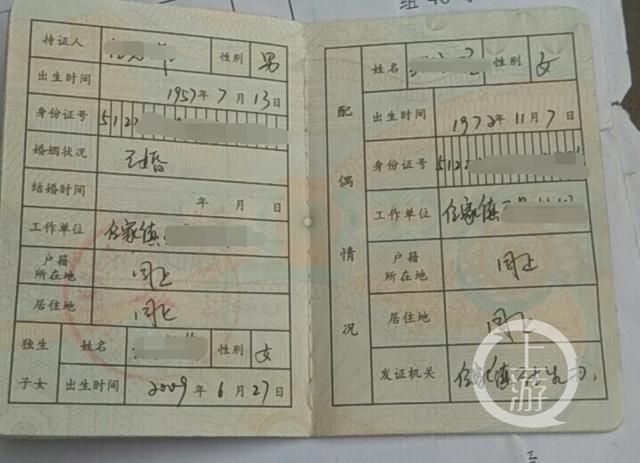 组
持证人 性别 男
出生时间 1957年7月13日
身份证号 5122
婚姻状况 已婚
结婚时间 年 月 日
工作单位 任家镇
户籍所在地 同上
居住地 同上
独生子女 姓名 性别 女
出生时间 2009年6月27日
配偶情况
姓名 性别 女
出生时间 1972年11月7日
身份证号 5122
工作单位 任家镇
户籍所在地 同上
居住地 同上
发证机关 任家镇
上游